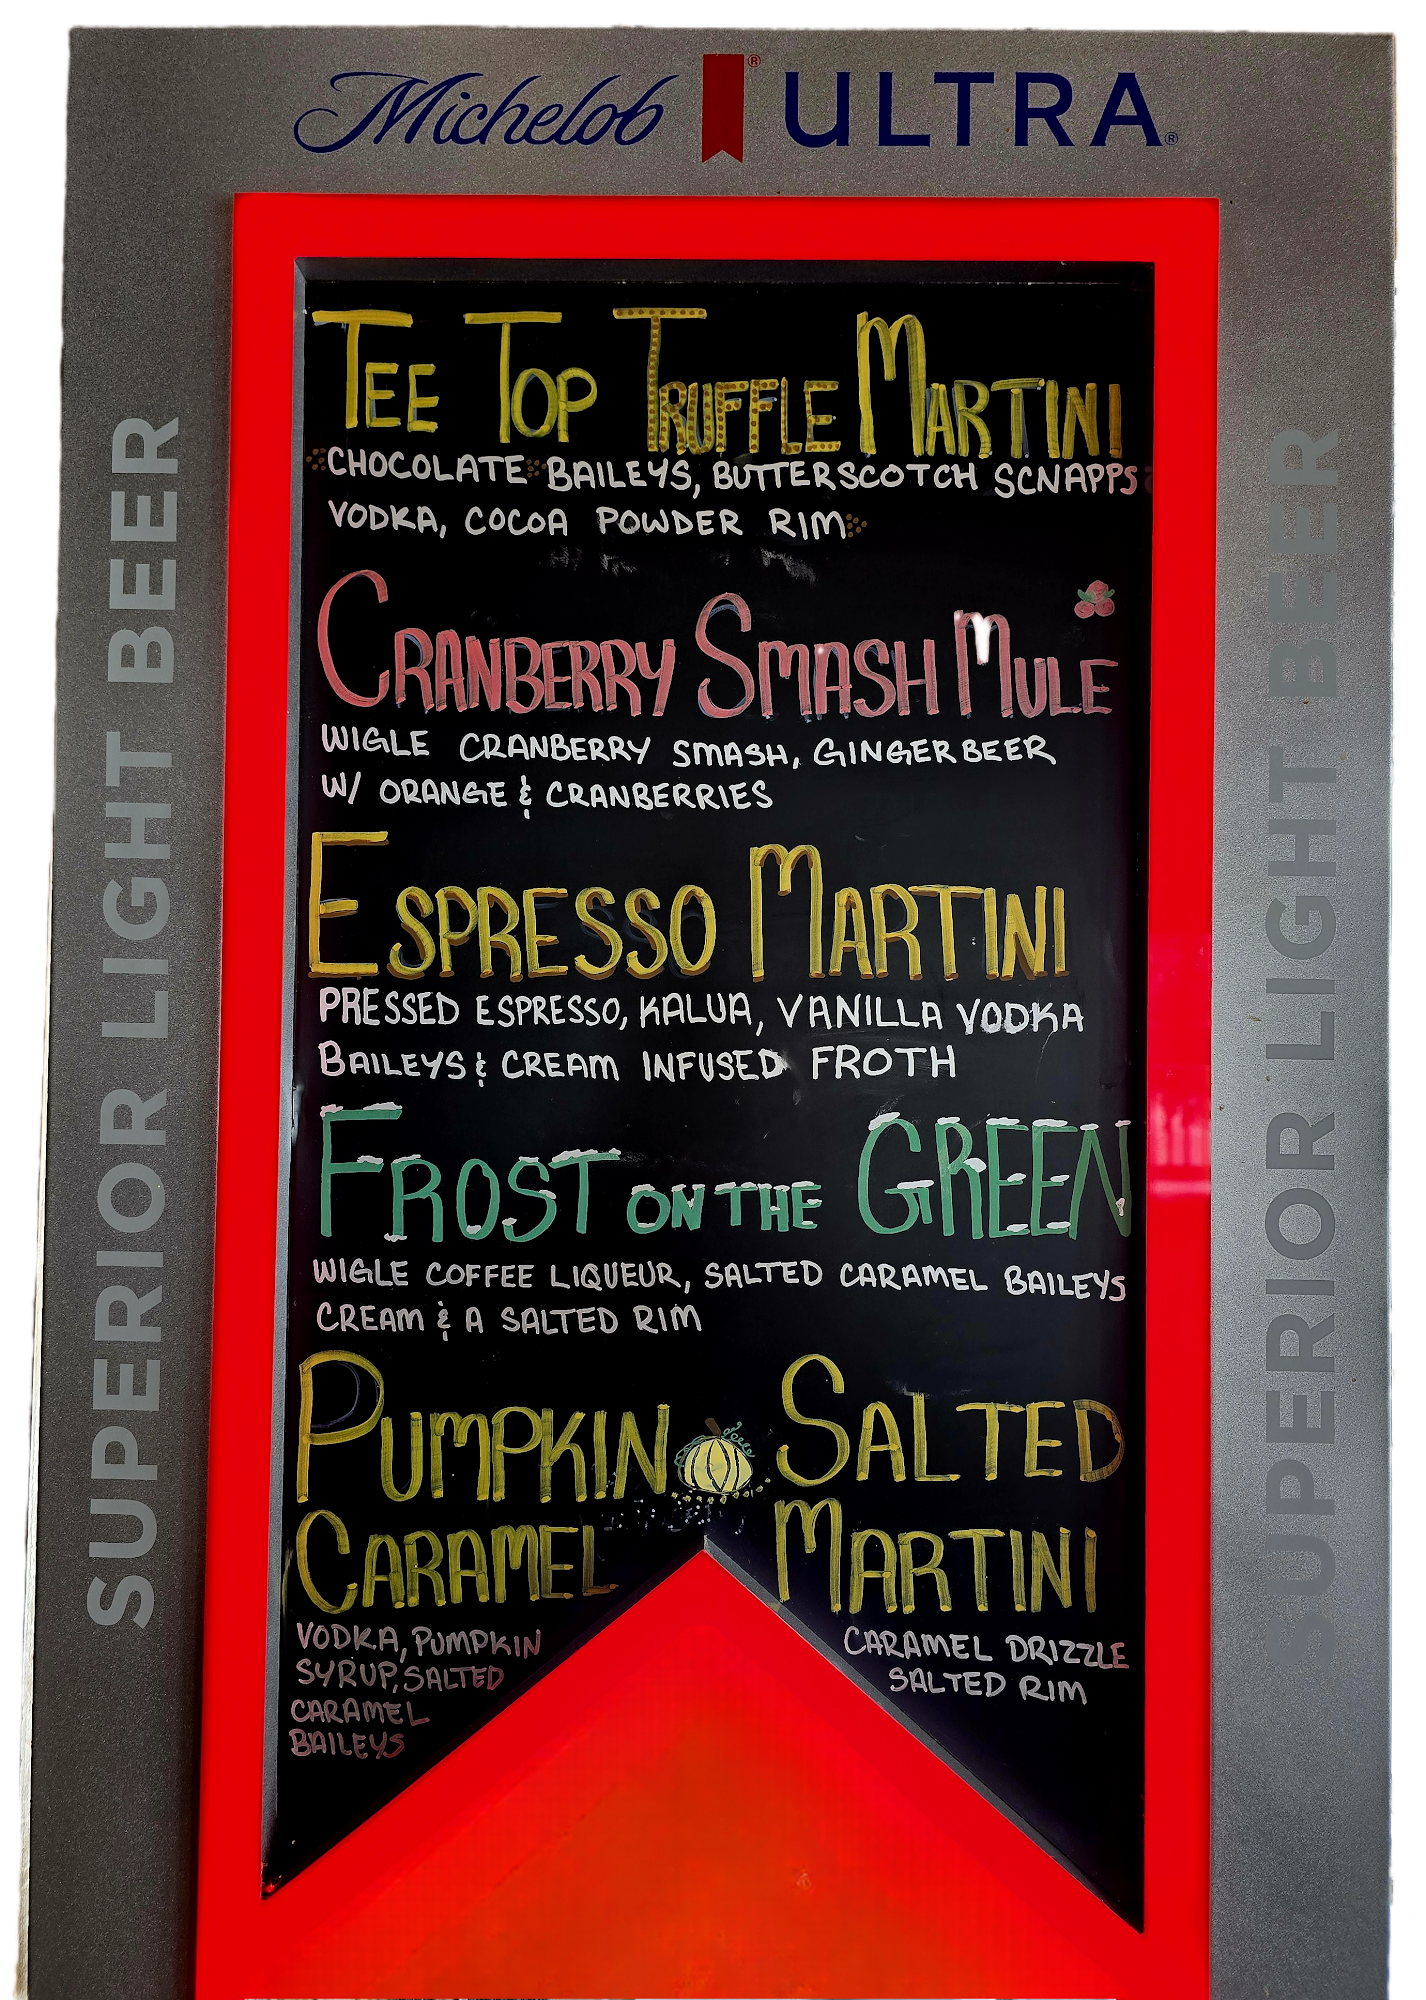 Michelob ULTRA
SUPERIOR LIGHT BEER
TEE TOP TRUFFLE MARTINI
CHOCOLATE BAILEYS, BUTTERSCOTCH SCNAPPS
VODKA, COCOA POWDER RIM
CRANBERRY SMASH MULE
WIGLE CRANBERRY SMASH, GINGER BEER
W/ ORANGE & CRANBERRIES
ESPRESSO MARTINI
PRESSED ESPRESSO, KALUA, VANILLA VODKA
BAILEYS & CREAM INFUSED FROTH
FROST ON THE GREEN
WIGLE COFFEE LIQUEUR, SALTED CARAMEL BAILEYS
CREAM & A SALTED RIM
PUMPKIN SALTED
CARAMEL MARTINI
VODKA, PUMPKIN
SYRUP, SALTED
CARAMEL
BAILEYS
CARAMEL DRIZZLE
SALTED RIM
SUPERIOR LIGHT BEER